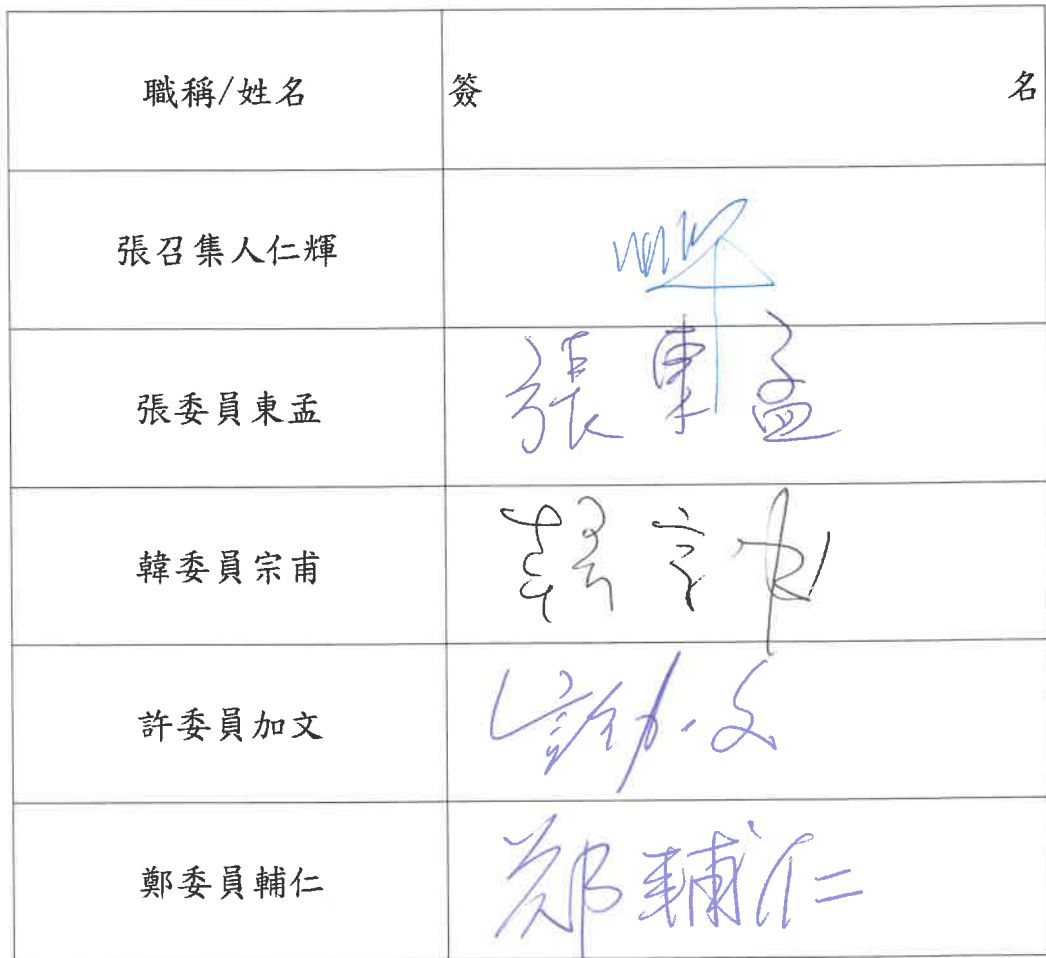 職稱/姓名 簽名
張召集人仁輝
張委員東孟 張東孟
韓委員宗甫 韓宗甫
許委員加文 許加文
鄭委員輔仁 鄭輔仁